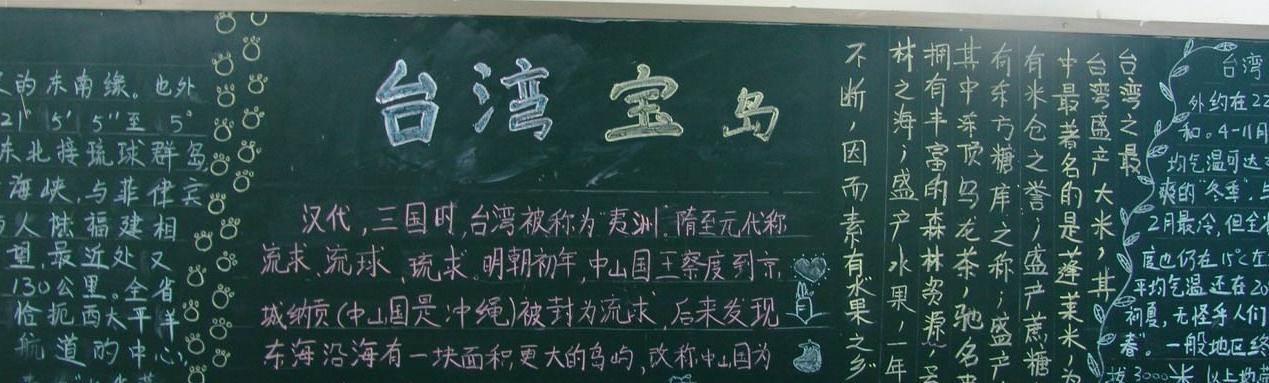 的东南缘。也外
21°5′5″至5°
东北接琉球群岛
海峡,与菲律宾
人陆福建相
望,最近处又
130公里。全省
恰扼西太平洋
航道的中心,
台湾宝岛
汉代,三国时,台湾被称为"夷洲".隋至元代称
流求、流球、琉求.明朝初年,中山国王察度到京
城纳贡(中山国是冲绳)被封为流求,后来发现
东海沿海有一块面积更大的岛屿,改称中山国为
台湾之最
台湾盛产大米,其
中最著名的是蓬莱米,为
有米仓之誉;盛产蔗糖
有东方糖库之称;盛产
其中冻顶乌龙茶,驰名
拥有丰富的森林资源,
林之海;盛产水果,一年
不断,因而素有水果之乡
台湾
外约在22
和。4-11月
均气温可达
爽的"冬季",
2月最冷,但全
度也仍在15℃左
平均气温还在20
祠夏,无怪乎人们
春"。一般地区终
拔3000米以上地